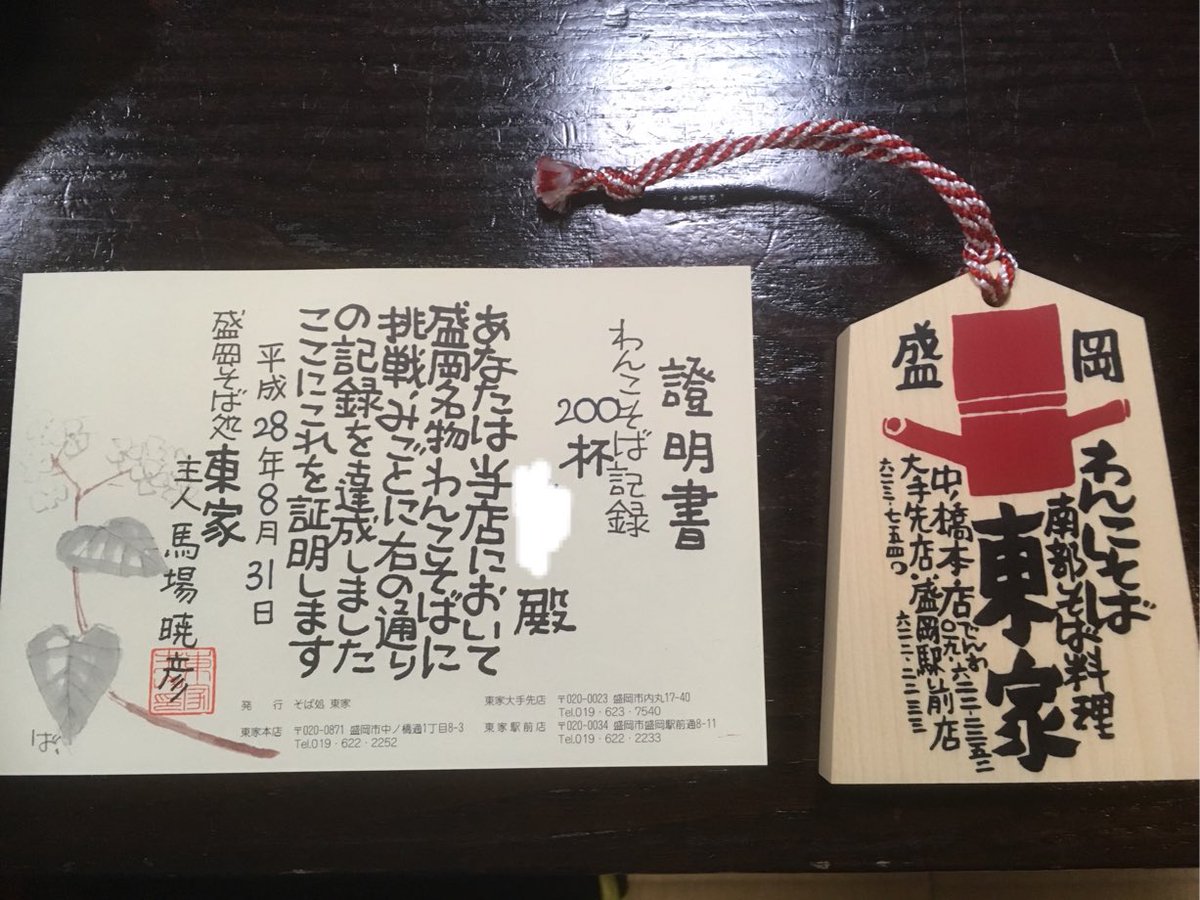 證明書
わんこそば記録
200杯
殿
あなたは当店において
盛岡名物わんこそばに
挑戦、みごとに右の通り
の記録を達成しました
ここにこれを証明します
平成28年8月31日
盛岡そば処 東家
主人 馬場暁彦
ば、
発 行 そば処 東家
東家本店 〒020-0871 盛岡市中ノ橋通1丁目8-3
Tel.019・622・2252
東家大手先店 〒020-0023 盛岡市内丸17-40
Tel.019・623・7540
東家駅前店 〒020-0034 盛岡市盛岡駅前通8-11
Tel.019・622・2233
盛岡
わんこそば
南部そば料理
東家
中ノ橋本店でんわ
〇一九・六二二・二二五二
大手先店・盛岡駅前店
六二三・七五四〇
六二二・二二三三